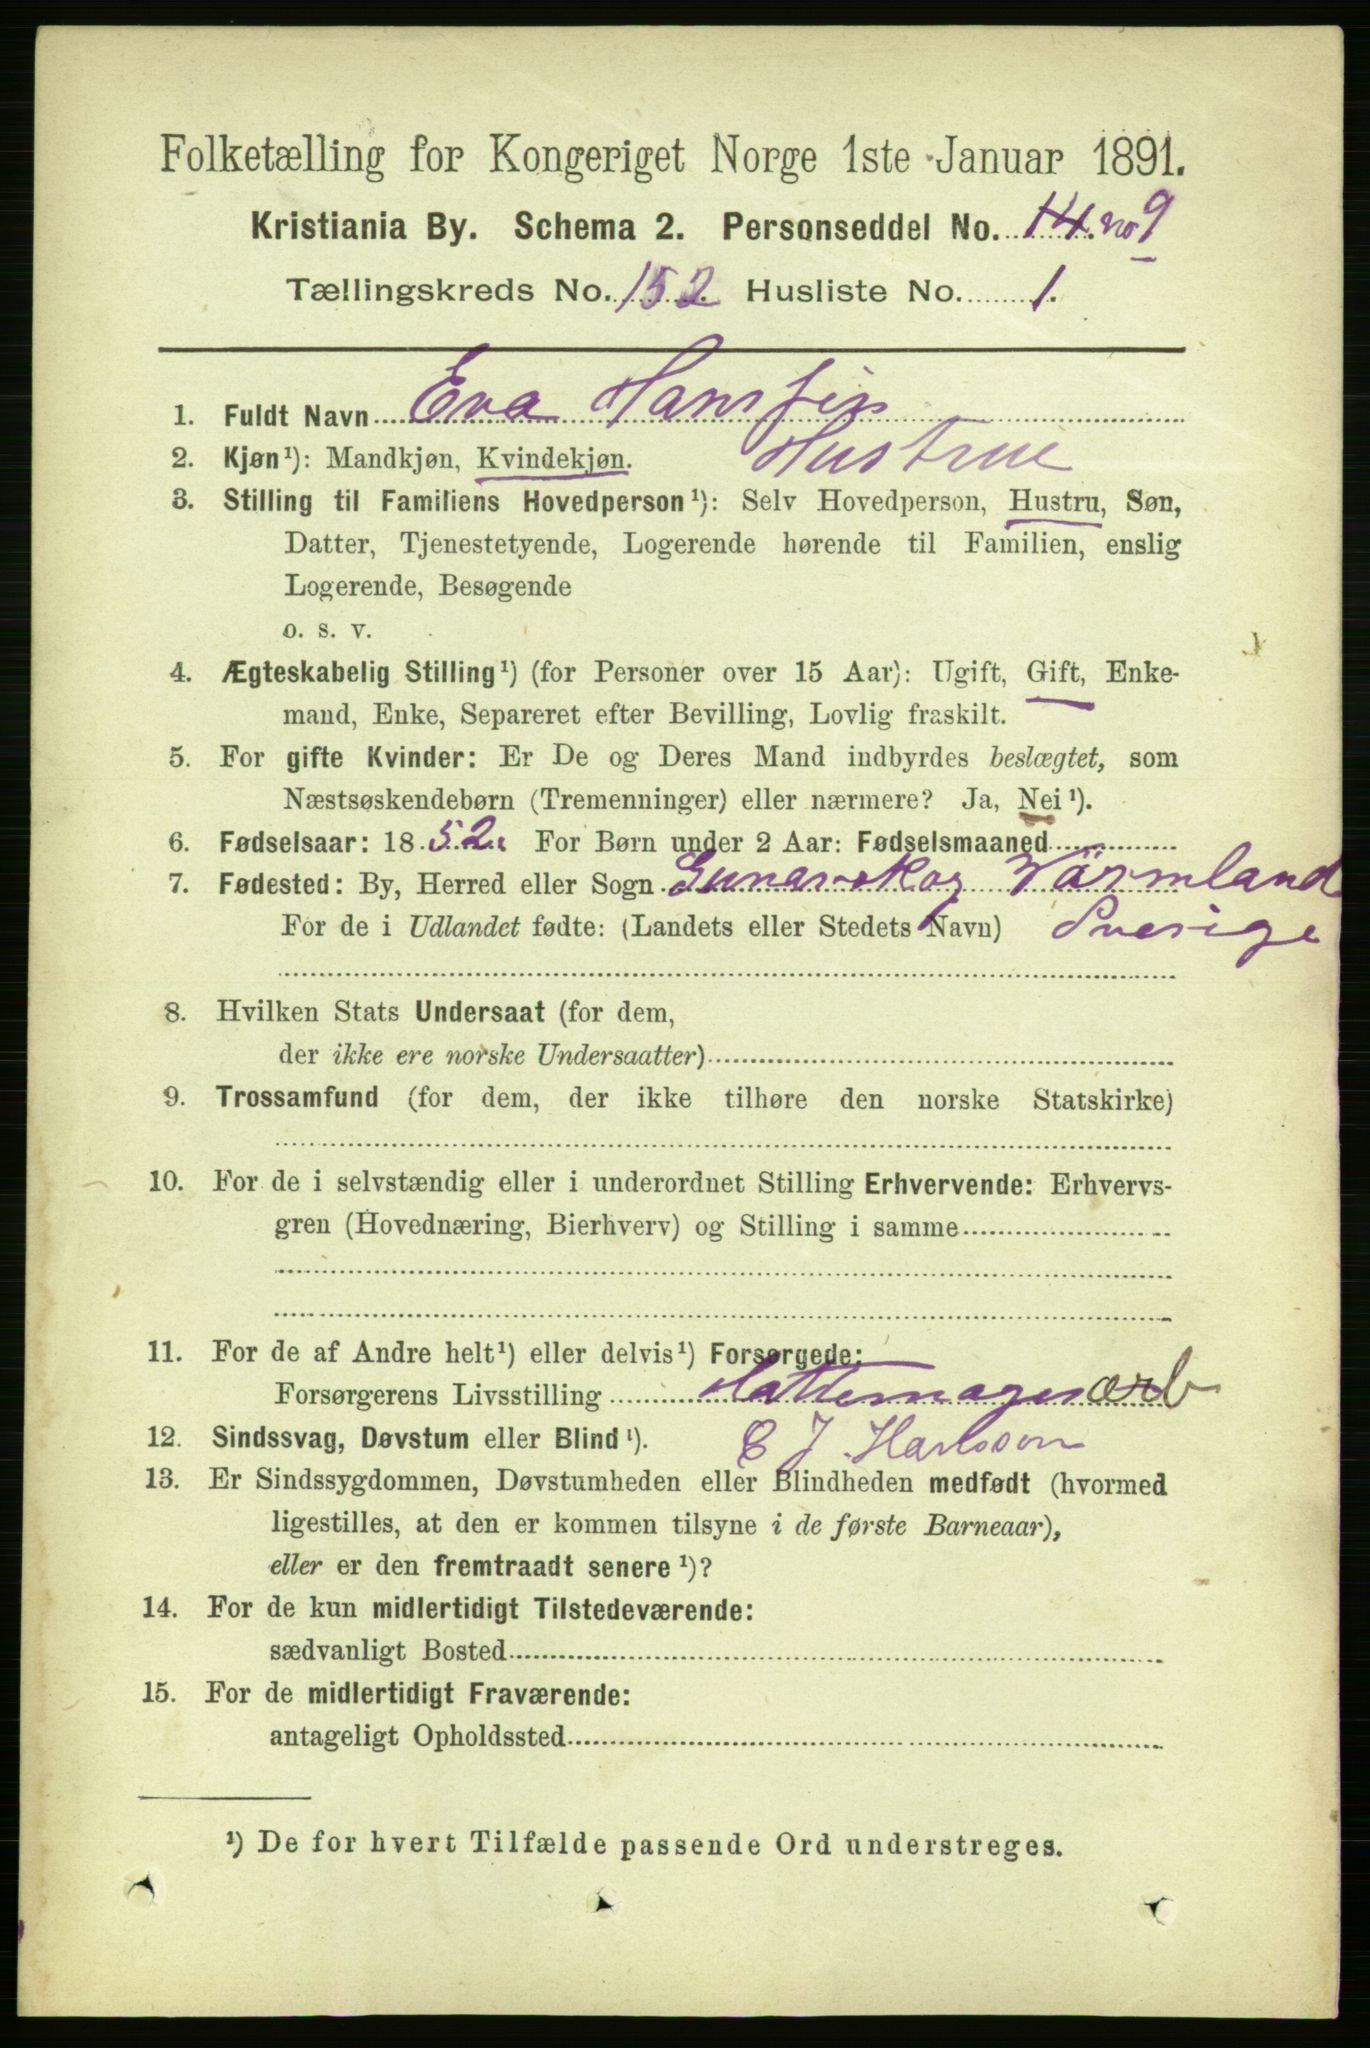 Folketælling for Kongeriget Norge 1ste Januar 1891.
Kristiania By. Schema 2. Personseddel No. 14. no 9
Tællingskreds No. 152 Husliste No. 1.
1. Fuldt Navn Eva
2. Kjøn¹): Mandkjøn, Kvindekjøn. Hustrue
3. Stilling til Familiens Hovedperson¹): Selv Hovedperson, Hustru, Søn,
Datter, Tjenestetyende, Logerende hørende til Familien, enslig
Logerende, Besøgende
o. s. v.
4. Ægteskabelig Stilling¹) (for Personer over 15 Aar): Ugift, Gift, Enke-
mand, Enke, Separeret efter Bevilling, Lovlig fraskilt.
5. For gifte Kvinder: Er De og Deres Mand indbyrdes beslægtet, som
Næstsøskendebørn (Tremenninger) eller nærmere? Ja, Nei¹).
6. Fødselsaar: 1852. For Børn under 2 Aar: Fødselsmaaned
7. Fødested: By, Herred eller Sogn Gunarskog Värmland
For de i Udlandet fødte: (Landets eller Stedets Navn) Sverige
8. Hvilken Stats Undersaat (for dem,
der ikke ere norske Undersaatter)
9. Trossamfund (for dem, der ikke tilhøre den norske Statskirke)
10. For de i selvstændig eller i underordnet Stilling Erhvervende: Erhvervs-
gren (Hovednæring, Bierhverv) og Stilling i samme
11. For de af Andre helt¹) eller delvis¹) Forsørgede:
Forsørgerens Livsstilling Hattemager arb
12. Sindssvag, Døvstum eller Blind¹). E J
13. Er Sindssygdommen, Døvstumheden eller Blindheden medfødt (hvormed
ligestilles, at den er kommen tilsyne i de første Barneaar),
eller er den fremtraadt senere¹)?
14. For de kun midlertidigt Tilstedeværende:
sædvanligt Bosted
15. For de midlertidigt Fraværende:
antageligt Opholdssted
¹) De for hvert Tilfælde passende Ord understreges.